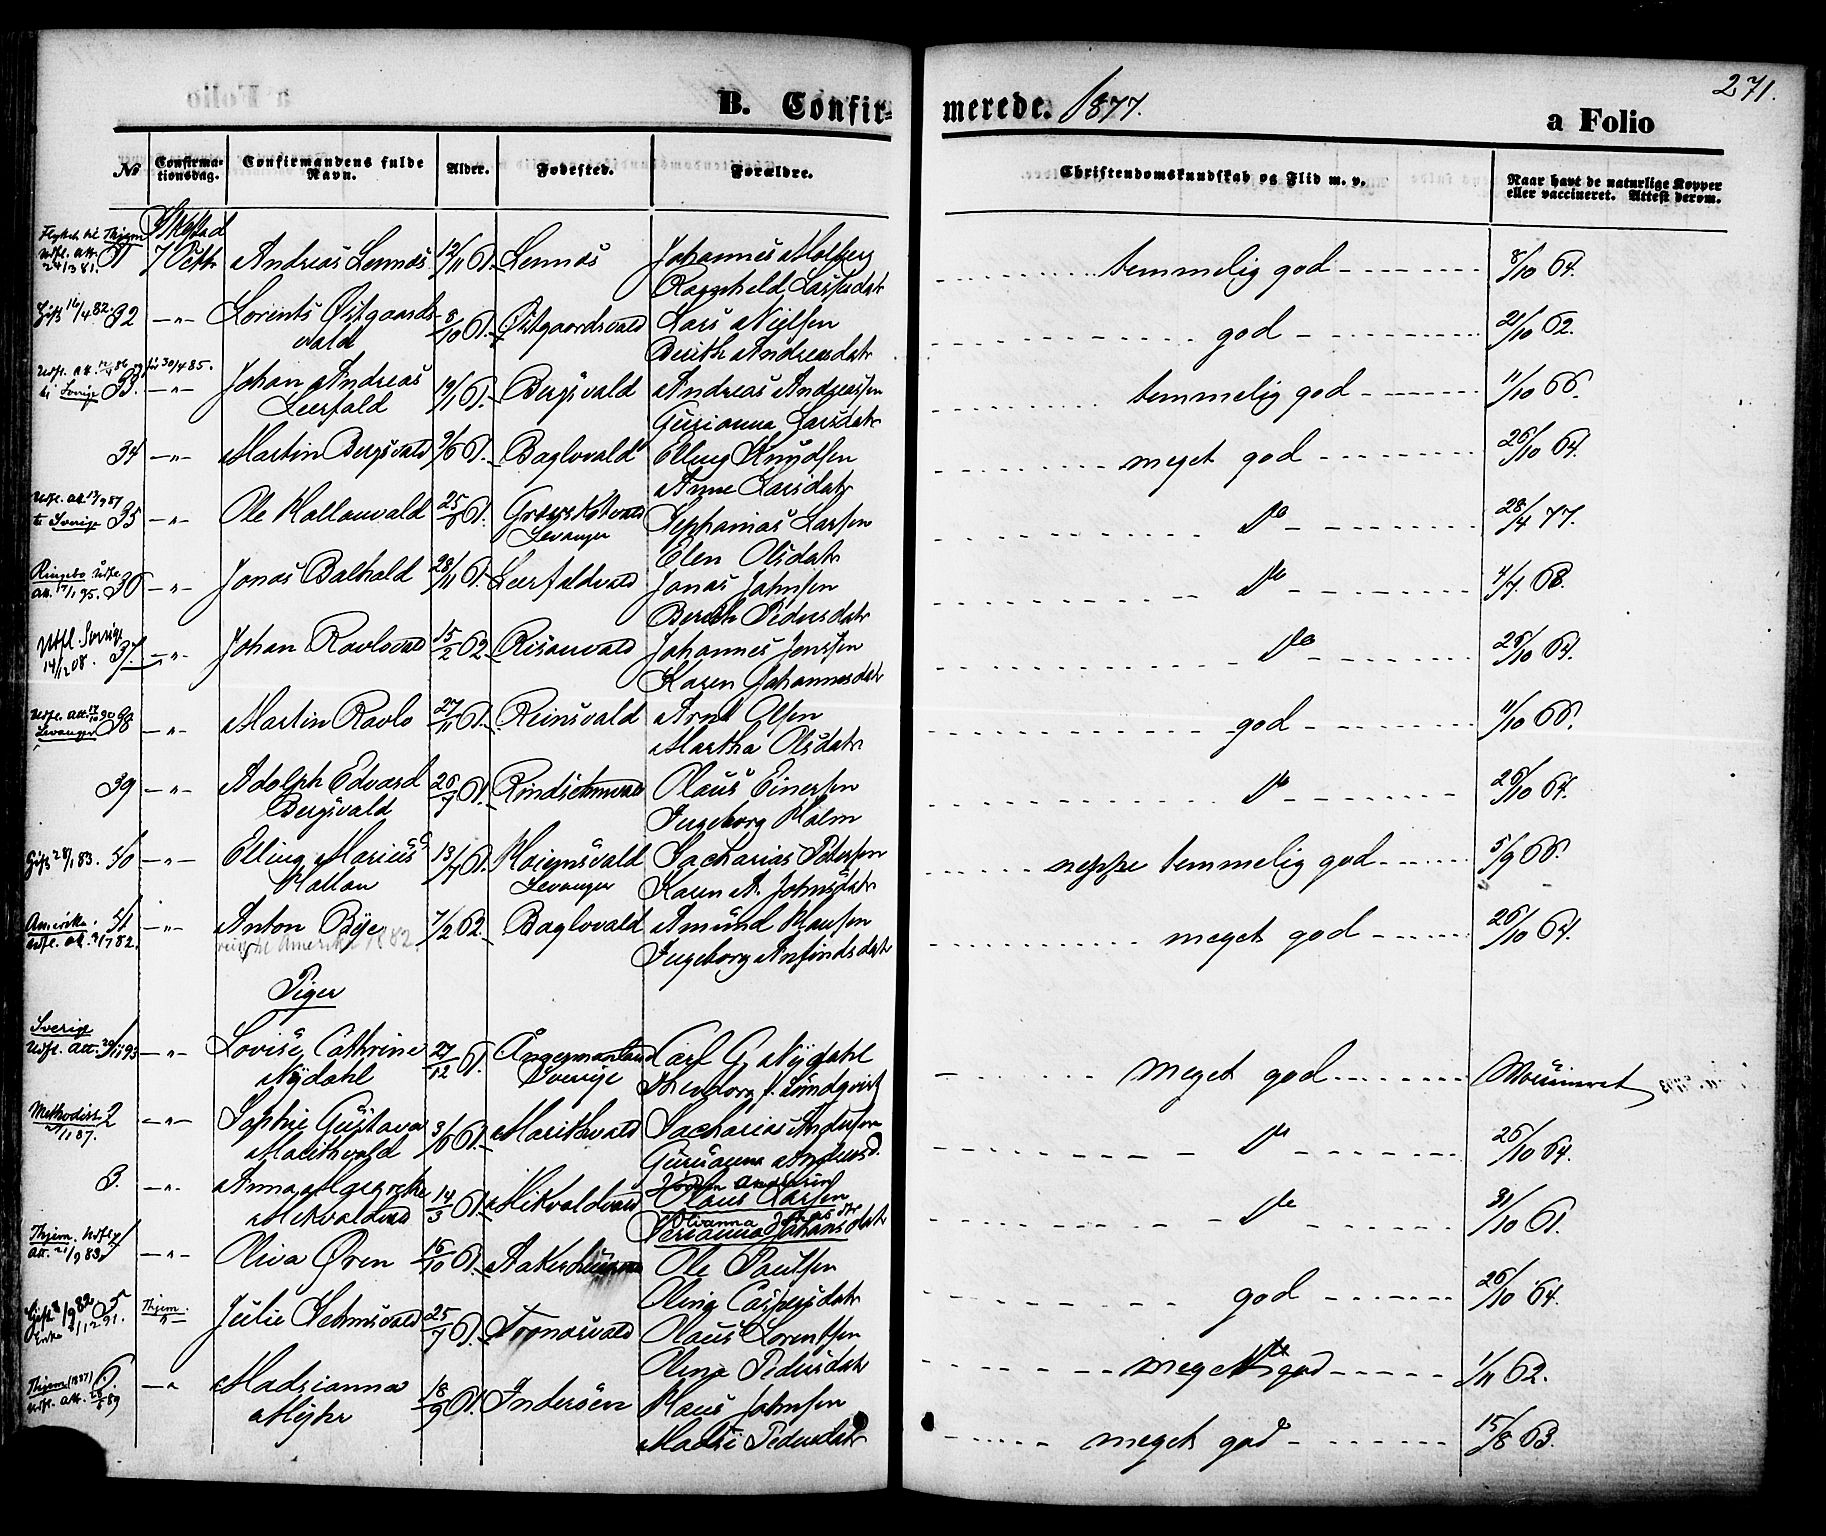 271.
a Folio
B. Confirmerede. 1877.
a Folio
No
Confirmationsdag.
Confirmandens fulde Navn.
Alder.
Fødested.
Forældre.
Christendomskundskab og Flid m. v.
Naar havt de naturlige Kopper eller vaccineret. Attest derom.
Skogstad
Flyttet til Thjem Udfl. att. 24/3 81. 31 7 Octbr Andreas Lennæs 12/11 61. Lennæs Johannes Molberg
Ragnhild Larsdatr temmelig god 8/10 64.
Gift 16/4 82. 32 —"— Lorents Østgaardsvald 8/10 61. Østgaardsvald Lars Nielsen
Berith Andreasdatr god 21/10 62.
Udfl. att. 12/4 86 til Sverige 33. —"— Johan Andreas Leerfald 19/1 61. Bergsvald Andreas Andreassen
Gurianna Larsdatr temmelig god 11/10 66.
34 —"— Martin Bergsvald 9/6 61. Baglovald Elling Knudsen
Anne Larsdatr meget god 26/10 64.
Udfl. att. 13/9 87 til Sverige 35 —"— Ole Hallanvald 25/6 61. Levanger Sephanias Larsen
Elen Olsdatr do 28/4 77.
Ringebo Udfl. att. 17/1 95. 36 —"— Jonas Balhald 28/11 61. Leerfaldvald Jonas Johnsen
Bereth Pedersdatr do 4/7 68.
Udfl. Sverige 14/12 08. 37. —"— Johan Ravlovald 15/2 62. Risanvald Johannes Jonssen
Karen Johannesdatr do 26/10 64.
Udfl. att. 17/10 90 Levanger 38 —"— Martin Ravlo 27/11 61. Reinsvald Arnt Olsen
Martha Olsdatr god 11/10 66.
39 —"— Adolph Edvard Bergsvald 26/7 61. Rindsemvald Olaus Einersen
Ingeborg Holm do 26/10 64.
Gift 28/1 83. 40 —"— Elling Marius Hallan 13/7 61. Levanger Sacharias Petersen
Karen A. Johnsdatr neppe temmelig god 5/9 66.
Amerika Udfl. att. 21/7 82. 41 —"— Anton Bye 7/2 62. Baglovald Amund Klausen
reist til Amerika 1882
Ingeborg Anfindsdatr meget god 26/10 64.
Piger
Sverige Udfl. Att. 29/11 93 1 —"— Lovise Cathrine Nydahl 27/12 61. Ångermanland Sverige Carl G. Nydahl
Theodora f. Lundqvist meget god
Methodist 2/1 87. 2 —"— Sophie Gustava Marithvald 3/6 61. Marithvald Sacharias Andersen
Gurianna Andersd. do 26/10 64.
3. —"— Anna Margrethe Mikvoldvald 14/3 61. Mikvoldvald Olaus Larsen
Johansdatr do 31/10 61.
Thjem. Udfl. Att. 21/9 83 4 —"— Oliva Øren 16/10 61. Ole Paulsen
Olina Caspersdatr god 26/10 64.
Gift 8/9 82 5. Thjem. Julie Semsvald 25/7 61. Toonasvald Olaus Lorentsen
Enke 9/12 91. Olina Pedersdatr meget god 1/11 62.
Thjem (1887) Udfl. att. 23/5 89 6. —"— Madrianna Myhr 18/9 61. Inderøen Klaus Johnsen
Marit Pedersdatr meget god 15/8 63.